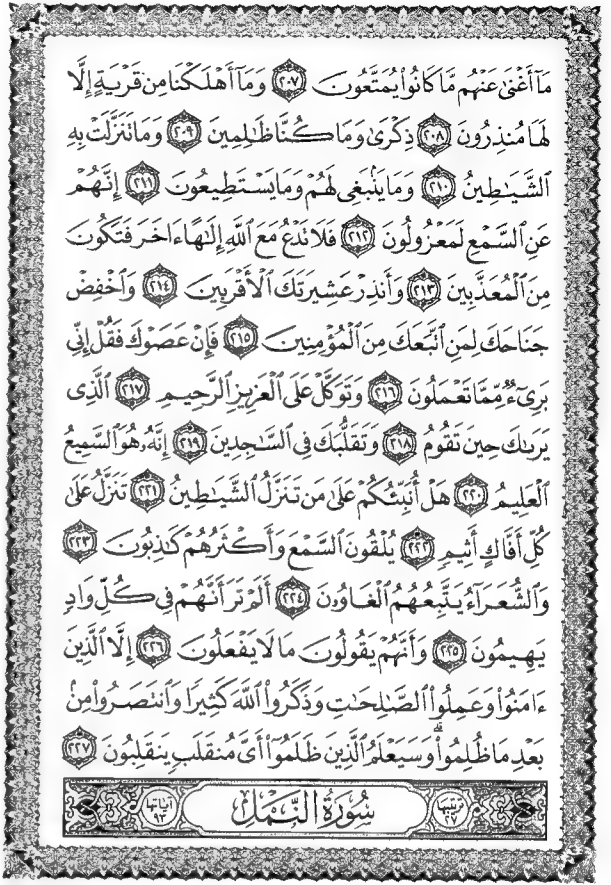 مَآ أَغْنَىٰ عَنْهُم مَّا كَانُوا۟ يُمَتَّعُونَ ﴿٢٠٧﴾ وَمَآ أَهْلَكْنَا مِن قَرْيَةٍ إِلَّا
لَهَا مُنذِرُونَ ﴿٢٠٨﴾ ذِكْرَىٰ وَمَا كُنَّا ظَٰلِمِينَ ﴿٢٠٩﴾ وَمَا تَنَزَّلَتْ بِهِ
ٱلشَّيَٰطِينُ ﴿٢١٠﴾ وَمَا يَنۢبَغِى لَهُمْ وَمَا يَسْتَطِيعُونَ ﴿٢١١﴾ إِنَّهُمْ
عَنِ ٱلسَّمْعِ لَمَعْزُولُونَ ﴿٢١٢﴾ فَلَا تَدْعُ مَعَ ٱللَّهِ إِلَٰهًا ءَاخَرَ فَتَكُونَ
مِنَ ٱلْمُعَذَّبِينَ ﴿٢١٣﴾ وَأَنذِرْ عَشِيرَتَكَ ٱلْأَقْرَبِينَ ﴿٢١٤﴾ وَٱخْفِضْ
جَنَاحَكَ لِمَنِ ٱتَّبَعَكَ مِنَ ٱلْمُؤْمِنِينَ ﴿٢١٥﴾ فَإِنْ عَصَوْكَ فَقُلْ إِنِّى
بَرِىٓءٌ مِّمَّا تَعْمَلُونَ ﴿٢١٦﴾ وَتَوَكَّلْ عَلَى ٱلْعَزِيزِ ٱلرَّحِيمِ ﴿٢١٧﴾ ٱلَّذِى
يَرَىٰكَ حِينَ تَقُومُ ﴿٢١٨﴾ وَتَقَلُّبَكَ فِى ٱلسَّٰجِدِينَ ﴿٢١٩﴾ إِنَّهُۥ هُوَ ٱلسَّمِيعُ
ٱلْعَلِيمُ ﴿٢٢٠﴾ هَلْ أُنَبِّئُكُمْ عَلَىٰ مَن تَنَزَّلُ ٱلشَّيَٰطِينُ ﴿٢٢١﴾ تَنَزَّلُ عَلَىٰ
كُلِّ أَفَّاكٍ أَثِيمٍ ﴿٢٢٢﴾ يُلْقُونَ ٱلسَّمْعَ وَأَكْثَرُهُمْ كَٰذِبُونَ ﴿٢٢٣﴾
وَٱلشُّعَرَآءُ يَتَّبِعُهُمُ ٱلْغَاوُۥنَ ﴿٢٢٤﴾ أَلَمْ تَرَ أَنَّهُمْ فِى كُلِّ وَادٍ
يَهِيمُونَ ﴿٢٢٥﴾ وَأَنَّهُمْ يَقُولُونَ مَا لَا يَفْعَلُونَ ﴿٢٢٦﴾ إِلَّا ٱلَّذِينَ
ءَامَنُوا۟ وَعَمِلُوا۟ ٱلصَّٰلِحَٰتِ وَذَكَرُوا۟ ٱللَّهَ كَثِيرًا وَٱنتَصَرُوا۟ مِنۢ
بَعْدِ مَا ظُلِمُوا۟ ۗ وَسَيَعْلَمُ ٱلَّذِينَ ظَلَمُوٓا۟ أَىَّ مُنقَلَبٍ يَنقَلِبُونَ ﴿٢٢٧﴾
ترتيبها ٢٧ سُورَةُ النَّمْلِ آياتها ٩٣